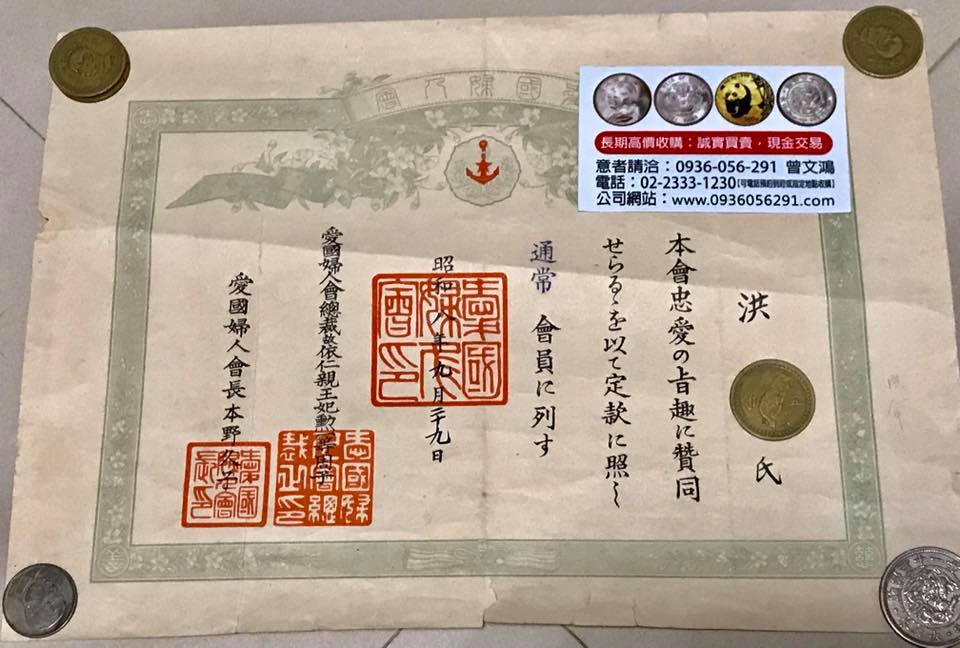 國婦人會
長期高價收購：誠實買賣，現金交易
意者請洽：0936-056-291 曾文鴻
電話：02-2333-1230【可電話預約到府或指定地點收購】
公司網站：www.0936056291.com
洪
氏
本會忠愛の旨趣に賛同
せらるゝを以て定款に照し
通常 會員に列す
昭和八年九月二十九日
愛國婦人會印
愛國婦人會總裁故依仁親王妃勲一等周子
愛國婦人會總裁之印
愛國婦人會長本野久子
愛國婦人會長之印